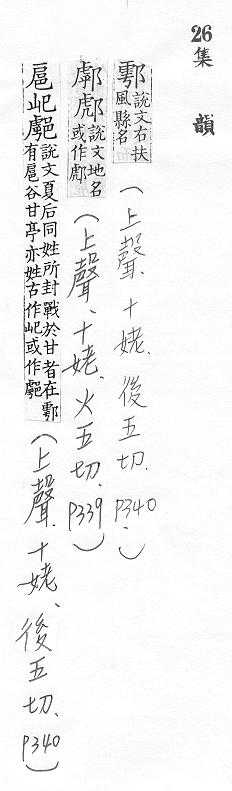 26 集韻
鄠
說文右扶
風縣名
(上聲、十姥、後五切、P340、)
說文地名
或作
(上聲、十姥、火五切、P339)
扈
說文夏后同姓所封戰於甘者在鄠
有扈谷甘亭亦姓古作 或作
(上聲、十姥、後五切、P340)